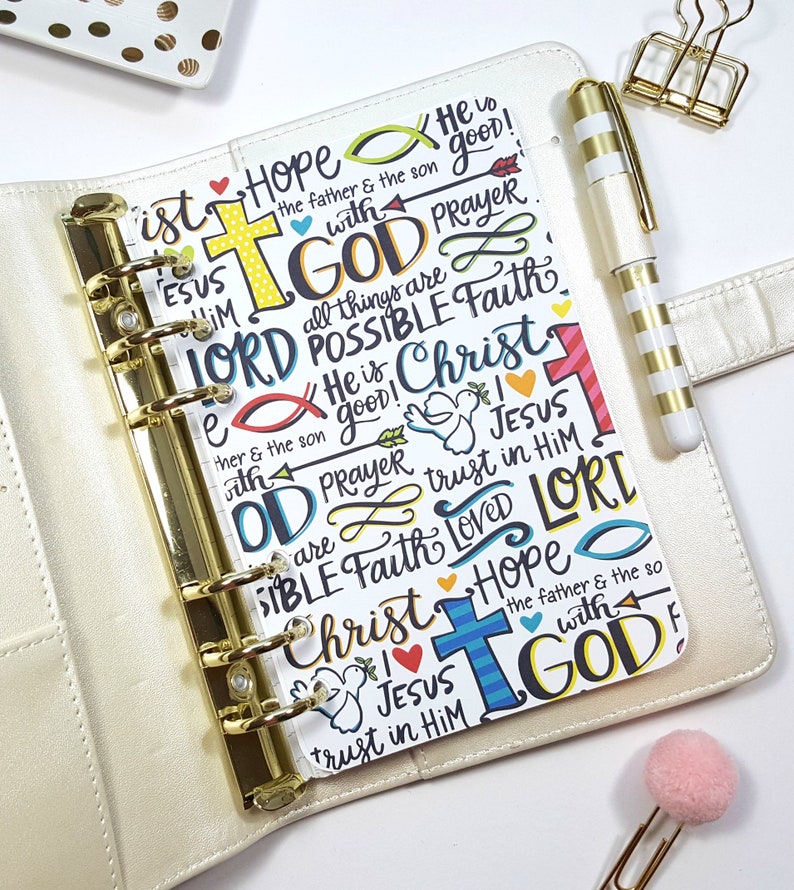 HOPE
He is
good!
ist
the father & the son
with
GOD
PRAYER
JESUS
HIM
all things are
POSSIBLE
Faith
LORD
Christ
He is
good!
I
JESUS
trust in HiM
ther & the son
with
PRAYER
LORD
OD
LOVED
are
SIBLE
Faith
HOPE
the father & the so
Christ
with
GOD
P
I
JESUS
trust in HiM